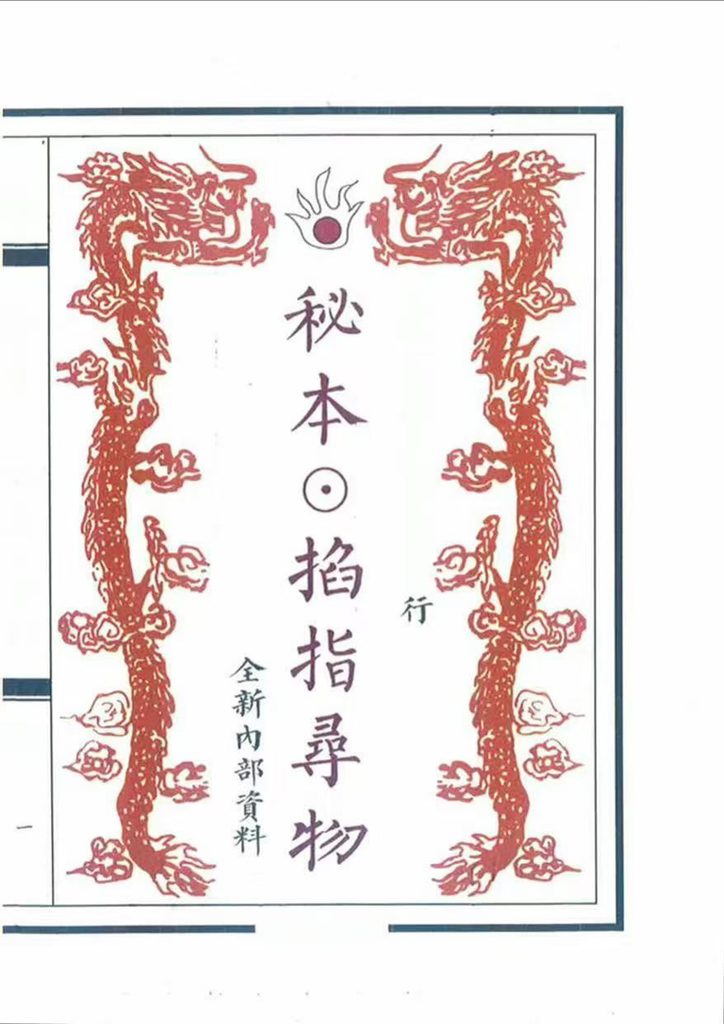 行
秘本⊙掐指尋物
全新內部資料
一